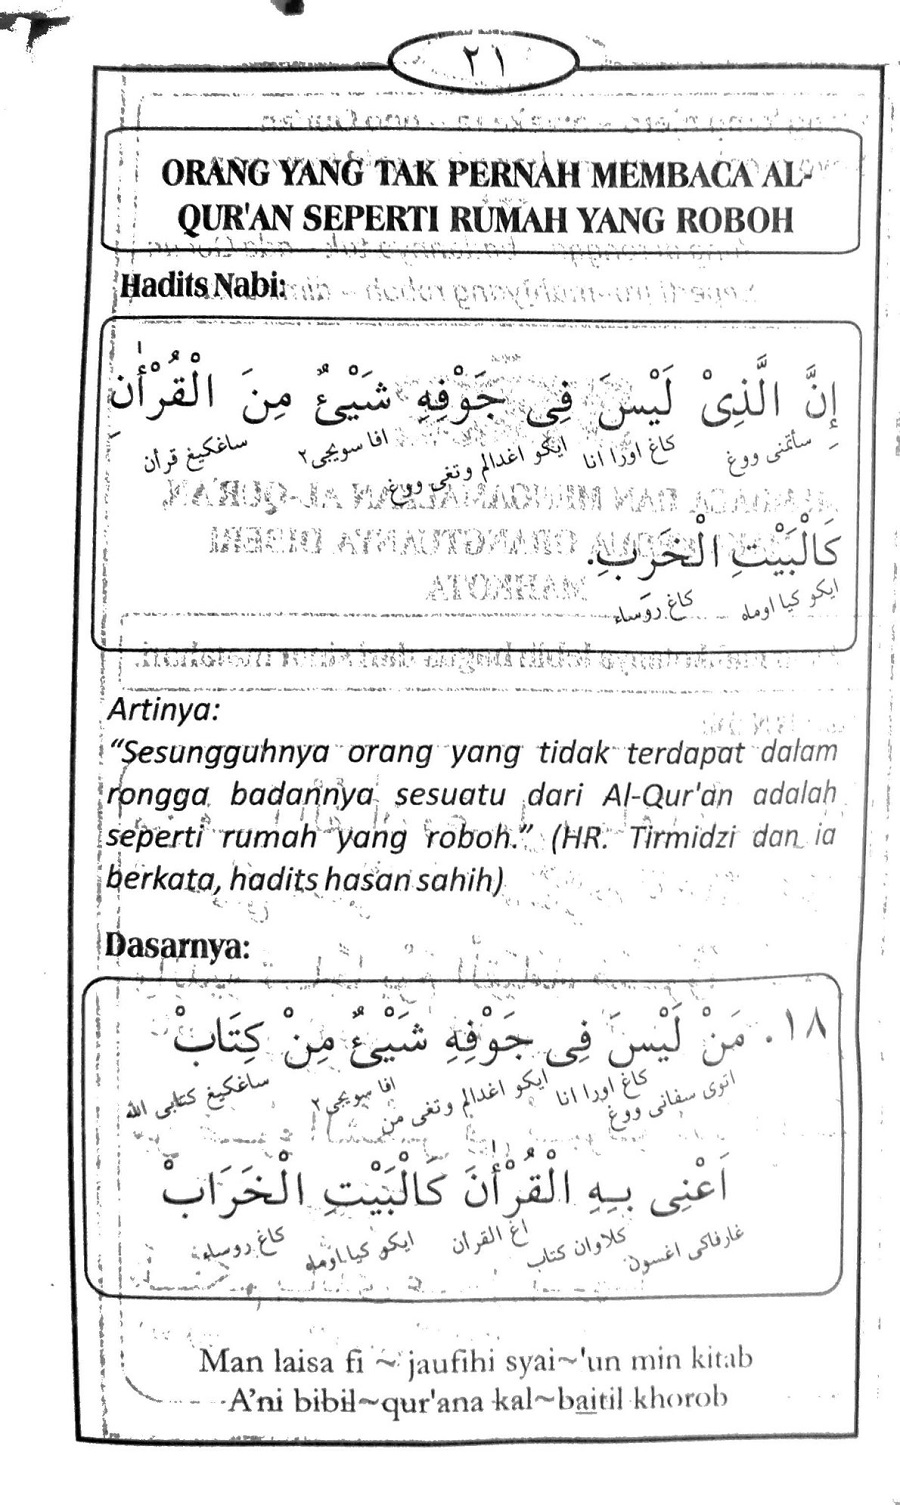 ٢١
ORANG YANG TAK PERNAH MEMBACA AL-
QUR'AN SEPERTI RUMAH YANG ROBOH
Hadits Nabi:
إِنَّ الَّذِىْ لَيْسَ فِى جَوْفِهِ شَيْئٌ مِنَ الْقُرْأٰنِ
سأتمنى ووغ كاغ اورا انا ايكو اغدالم وتغى ووغ افا سويجى٢ ساغكيغ قرأن
كَالْبَيْتِ الْخَرَبِ.
ايكو كيا اومه كاغ روساء
Artinya:
“Sesungguhnya orang yang tidak terdapat dalam
rongga badannya sesuatu dari Al-Qur'an adalah
seperti rumah yang roboh.” (HR. Tirmidzi dan ia
berkata, hadits hasan sahih)
Dasarnya:
١٨. مَنْ لَيْسَ فِى جَوْفِهِ شَيْئٌ مِنْ كِتَابْ
اتوى سفانى ووغ كاغ اورا انا ايكو اغدالم وتغى من افا سويجى٢ ساغكيغ كتابى الله
اَعْنِى بِهِ الْقُرْأٰنَ كَالْبَيْتِ الْخَرَابْ
غارفاكى اغسون كلاوان كتاب اغ القرأن ايكو كيا اومه كاغ روساء
Man laisa fi ~ jaufihi syai~'un min kitab
A’ni bibil~qur'ana kal~baitil khorob